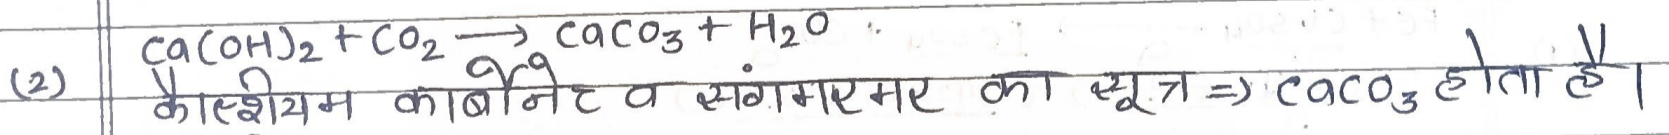 Ca(OH)₂ + CO₂ → CaCO₃ + H₂O
(2) कैल्शीयम कार्बोनेट व संगमरमर का सूत्र ⇒ CaCO₃ होता है।